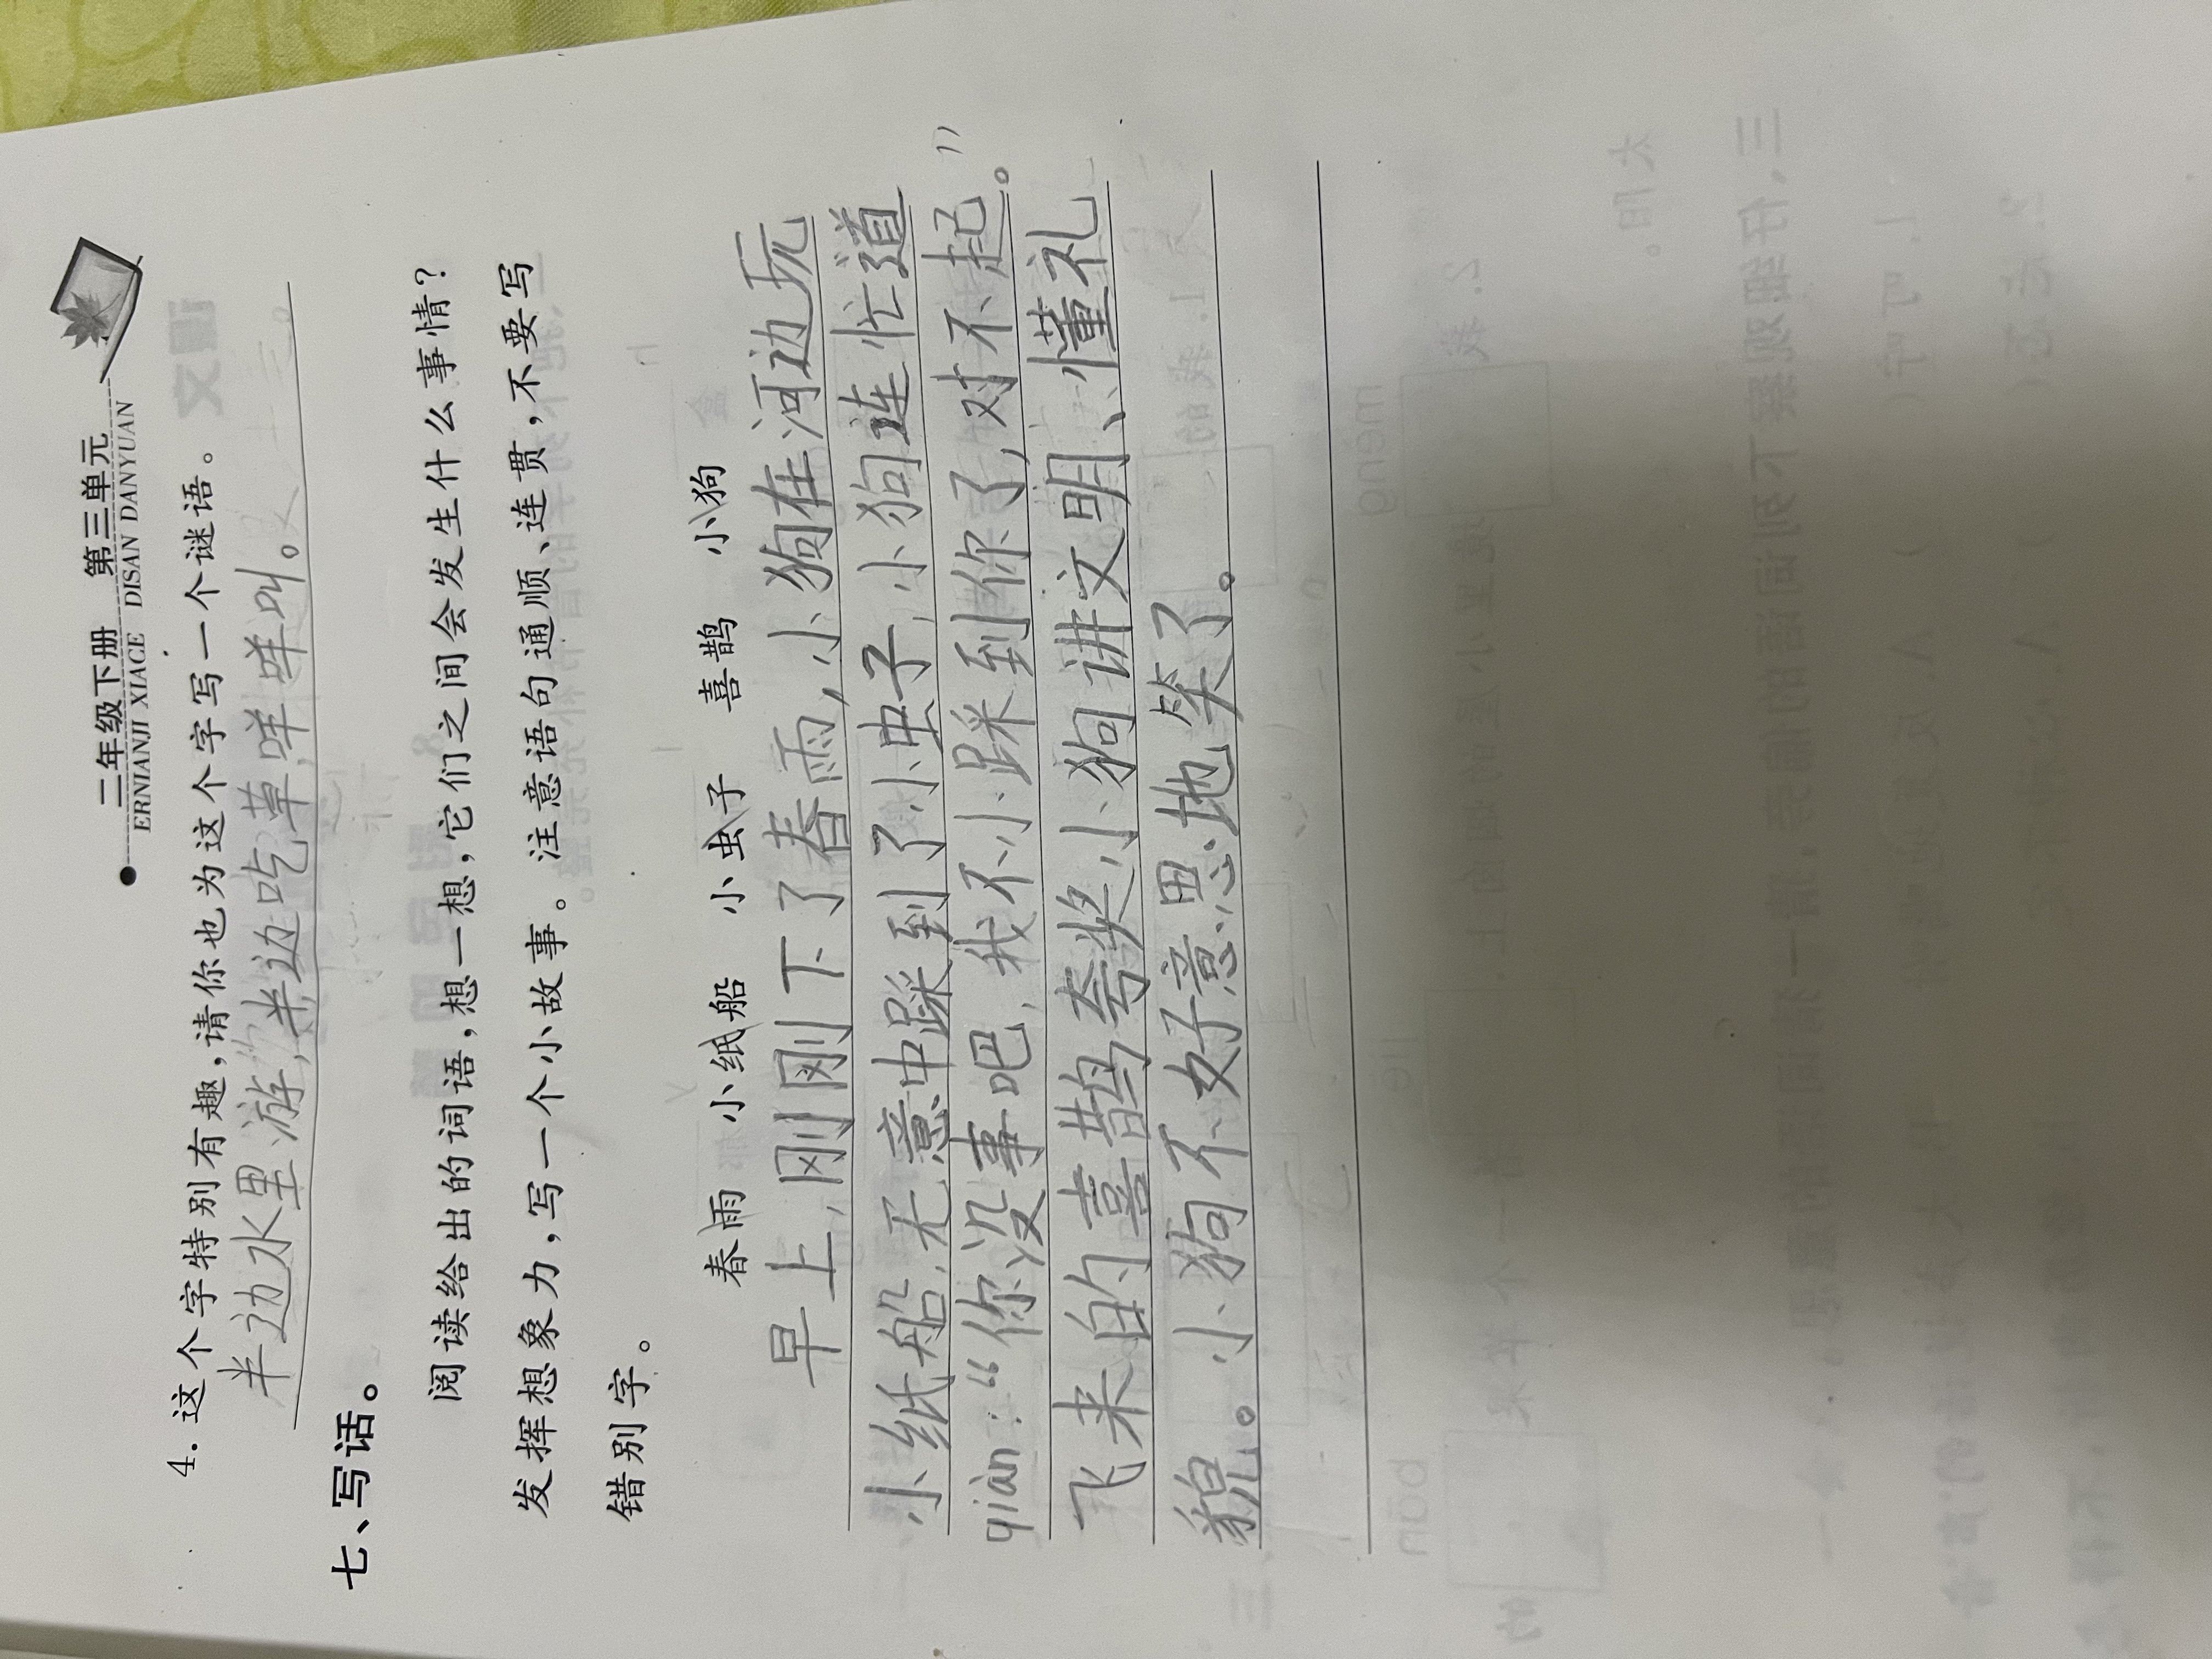 二年级下册 第三单元
ERNIANJI XIACE DISAN DANYUAN
4. 这个字特别有趣,请你也为这个字写一个谜语。
半边水里游,半边吃草,咩咩叫。
七、写话。
阅读给出的词语,想一想,它们之间会发生什么事情?
发挥想象力,写一个小故事。注意语句通顺、连贯,不要写
错别字。
春雨 小纸船 小虫子 喜鹊 小狗
早上,刚刚下了春雨,小狗在河边玩
小纸船,无意中踩到了小虫子,小狗连忙道
qiàn:“你没事吧,我不小踩到你了,对不起。”
飞来的喜鹊夸奖小狗讲文明、懂礼
貌。小狗不好意思地笑了。